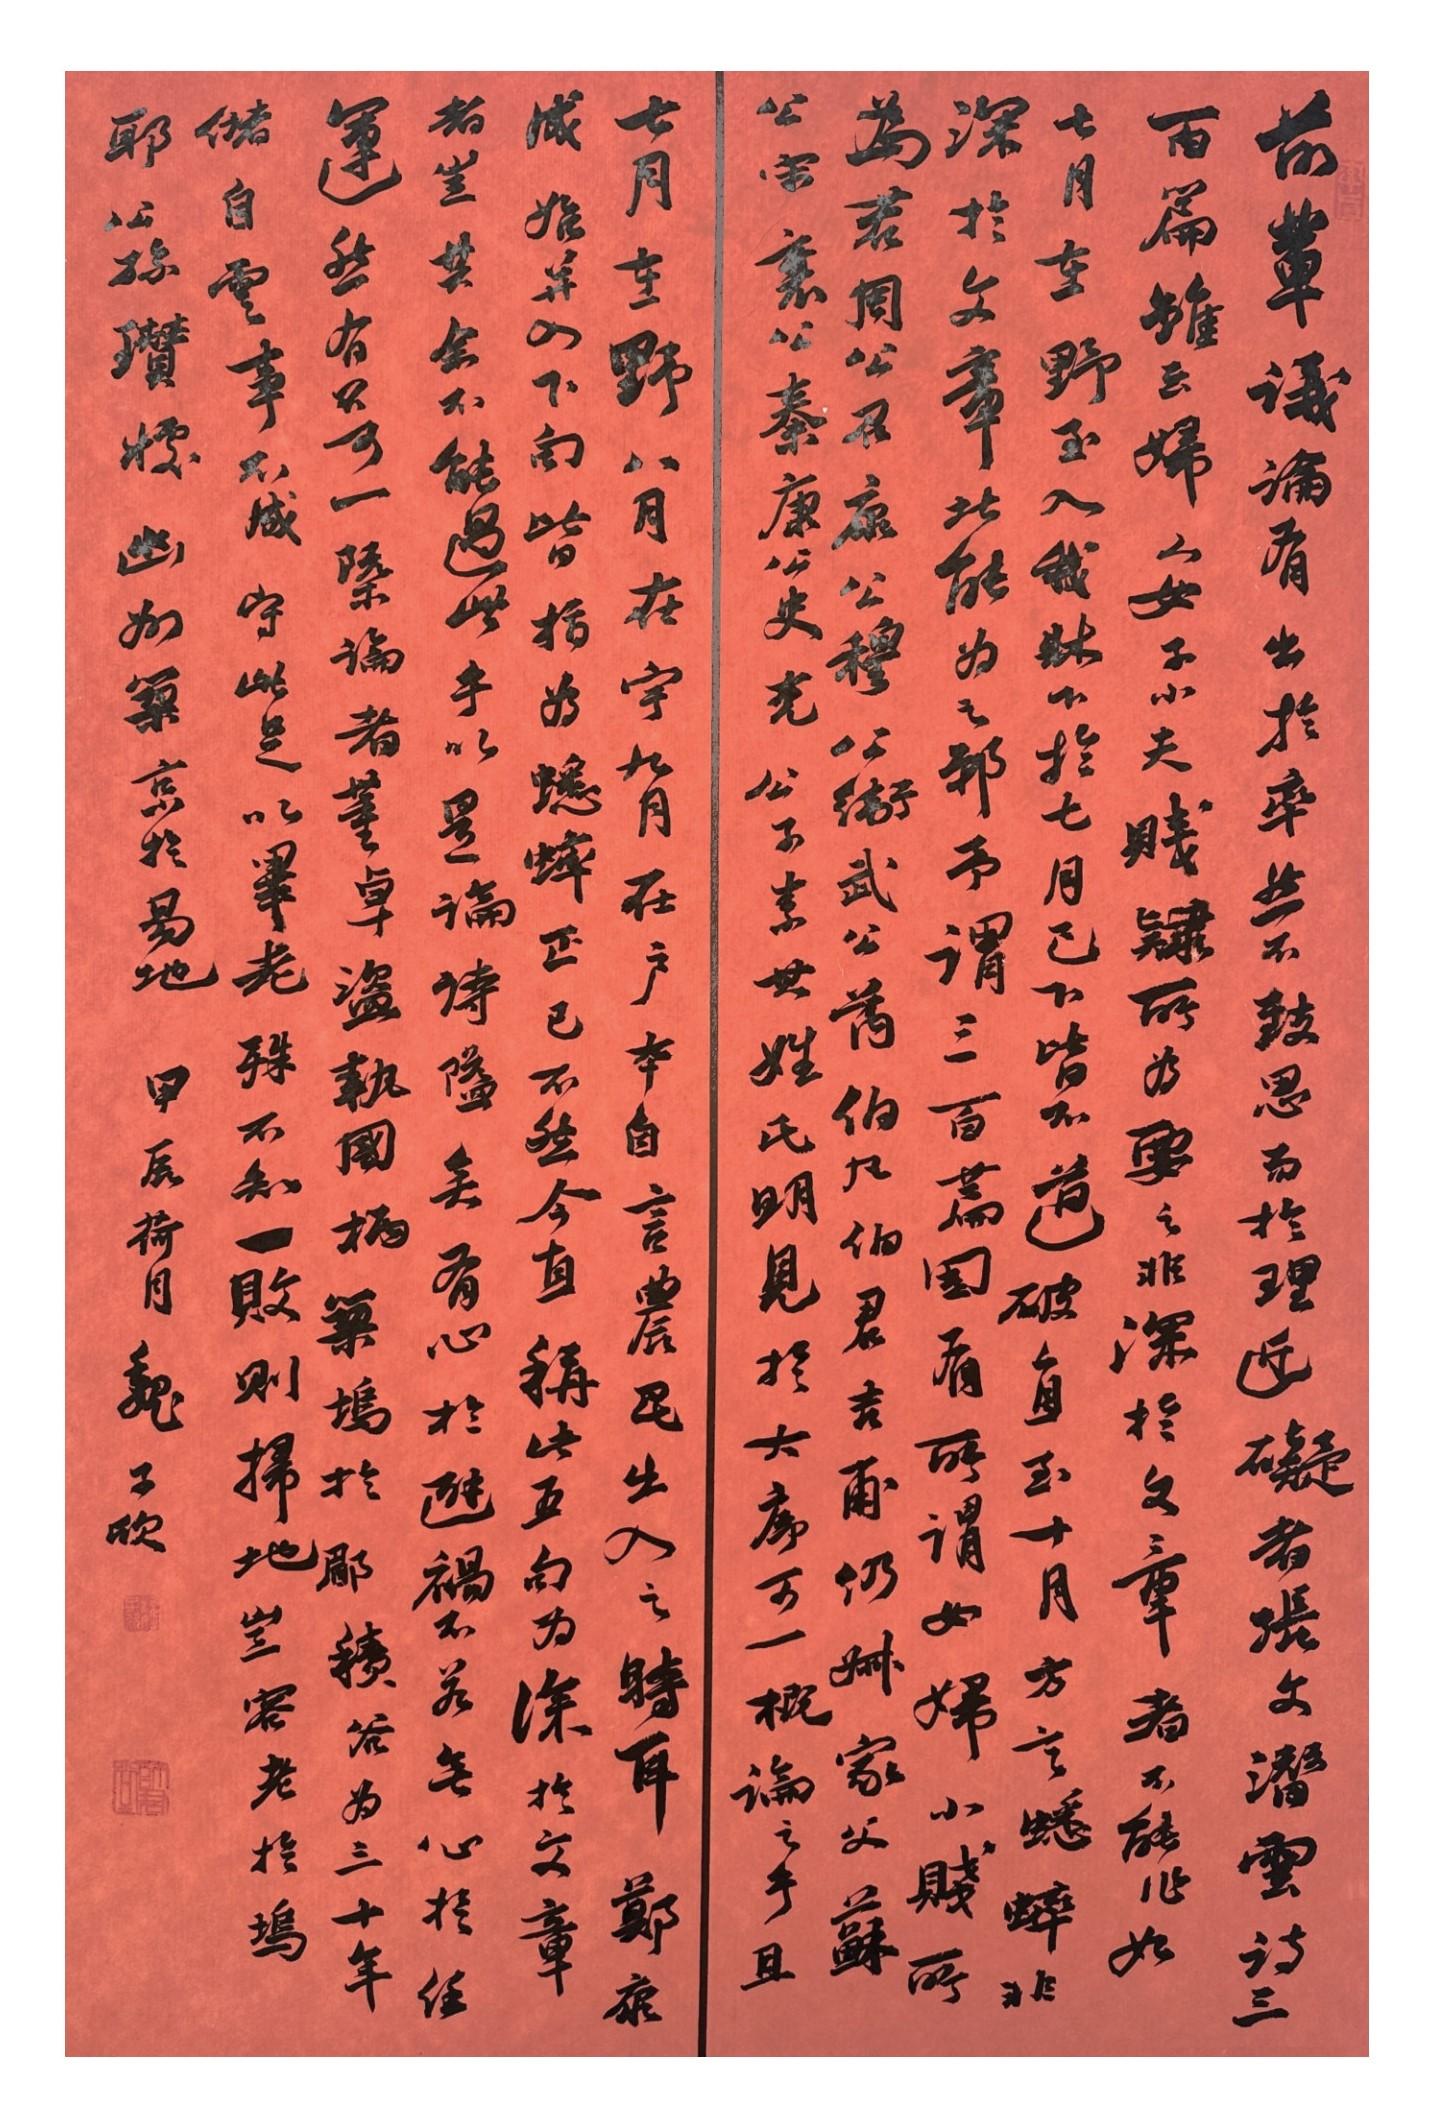 前輩議論有出於率然不致思而於理近礙者張文潛雲詩三
百篇雖云婦人女子小夫賤隸所為要之非深於文章者不能作如
七月在野至入我牀下於七月已下皆不道破直至十月方言蟋蟀非
深於文章此能為之邪予謂三百篇固有所謂女婦小賤所
為若周公召康公穆公衛武公芮伯凡伯君吉甫仍叔家父蘇
公宋襄公秦康公史克公子素其姓氏明見於大序可一概論之乎且
七月在野八月在宇九月在户本自言農民出入之時耳鄭康
成始并入下句皆指為蟋蟀正已不然今直稱此五句為深於文章
者豈其余不能過此乎以是論詩隘矣有心於避禍不若無心於任
運然有不可一槩論者董卓盜執國柄築塢於郿積谷為三十年
儲自雲事不成守此足以畢老殊不知一敗則掃地豈容老於塢
耶公孫瓚據幽州築京於易地 甲辰荷月魏子欣